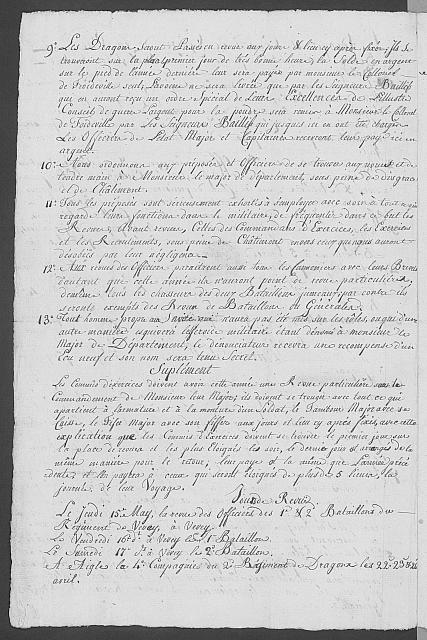 9.° Les Dragons seront passés en revue aux jours & lieux cy après fixés, Ils se
trouveront sur la place premier jour de très bonne heure, la Solde en argent
sur le pied de l'année dernière leur sera payée par monsieur le Colonel
de Froideville seul, L'avoine ne sera livrée que par les Seigneurs Baillifs
qui en auront reçu un ordre Spécial de Leurs Excellences de l'Illustre
Conseil de guerre l'argent pour la sera remis à Monsieur le Colonel
de Froideville par les Seigneurs Baillifs qui jusques ici en ont été chargés
Les Officiers de l'état Major et Capitaines recevront leur paÿe ici en
argent.
10.° Nous ordonnons aux préposés et Officiers de se trouver aux et de
tendre main à Monsieur le major de département, sous peine de disgrace
et de Châtiment.
11.° Tous les préposés sont sérieusement exhortés à s'employer avec soin à tout ce qui
regarde leurs fonctions dans le militaire, de fréquenter dans ce but les
Revues, Avant revues, Celles des Commandans d'Exercices, les Exercices
et les Enrôlements, sous peine de Châtiment envers ceux qui auront
désobéi par leur négligence.
12.° Aux revues des Officiers paraitront aussi tous les avec leurs
d'autant que cette année ils n'auront point de revue particulière,
demême tous les chasseurs de deux Bataillons jumeaux, par contre ils
seront exempts des Revues de Bataillons & Générales.
13.° Tout homme jusqu'au qui n'aura pas été mis sur les rôles, ou qui d'une
autre manière esquivera l'office militaire étant dénoncé à monsieur le
Major de Département, le dénonciateur recevra une recompense d'un
Ecu neuf et son nom sera tenu Secret.
Suplément
Les Commis d'exercices doivent avoir cette année une Revue particulière sous le
Commandement de Monsieur leur Major, ils doivent se trouver avec tout ce qui
apartient à l'armature et à la monture d'un Soldat, le Tambour Major avec sa
Caisse, le Fifre Major avec son fiffre aux jours et lieu cy après fixés, avec cette
explication que les Commis d'Exercices doivent se trouver le premier jour sur
la place de revue et les plus éloignés les soir, le dernier jour de la
même manière pour le retour, leur paye est la même que l'année précé
dente, et on payera à ceux qui seront éloignés de plus de 5 lieues, la
journée de leur Voyage.
Jour de Revue.
Le Jeudi 15.e May, la revue des Officiers des 1.er & 2.e Bataillons du
Régiment de Vevey, à Vevey.
Le Vendredi 16.e d.° à Vevey le 1.er Bataillon.
Le Samedi 17.e d.° à Vevey le 2.e Bataillon.
A Aigle la 4.e Compagnie du 2.e Régiment de Dragons les 22. 23. & 24
avril.